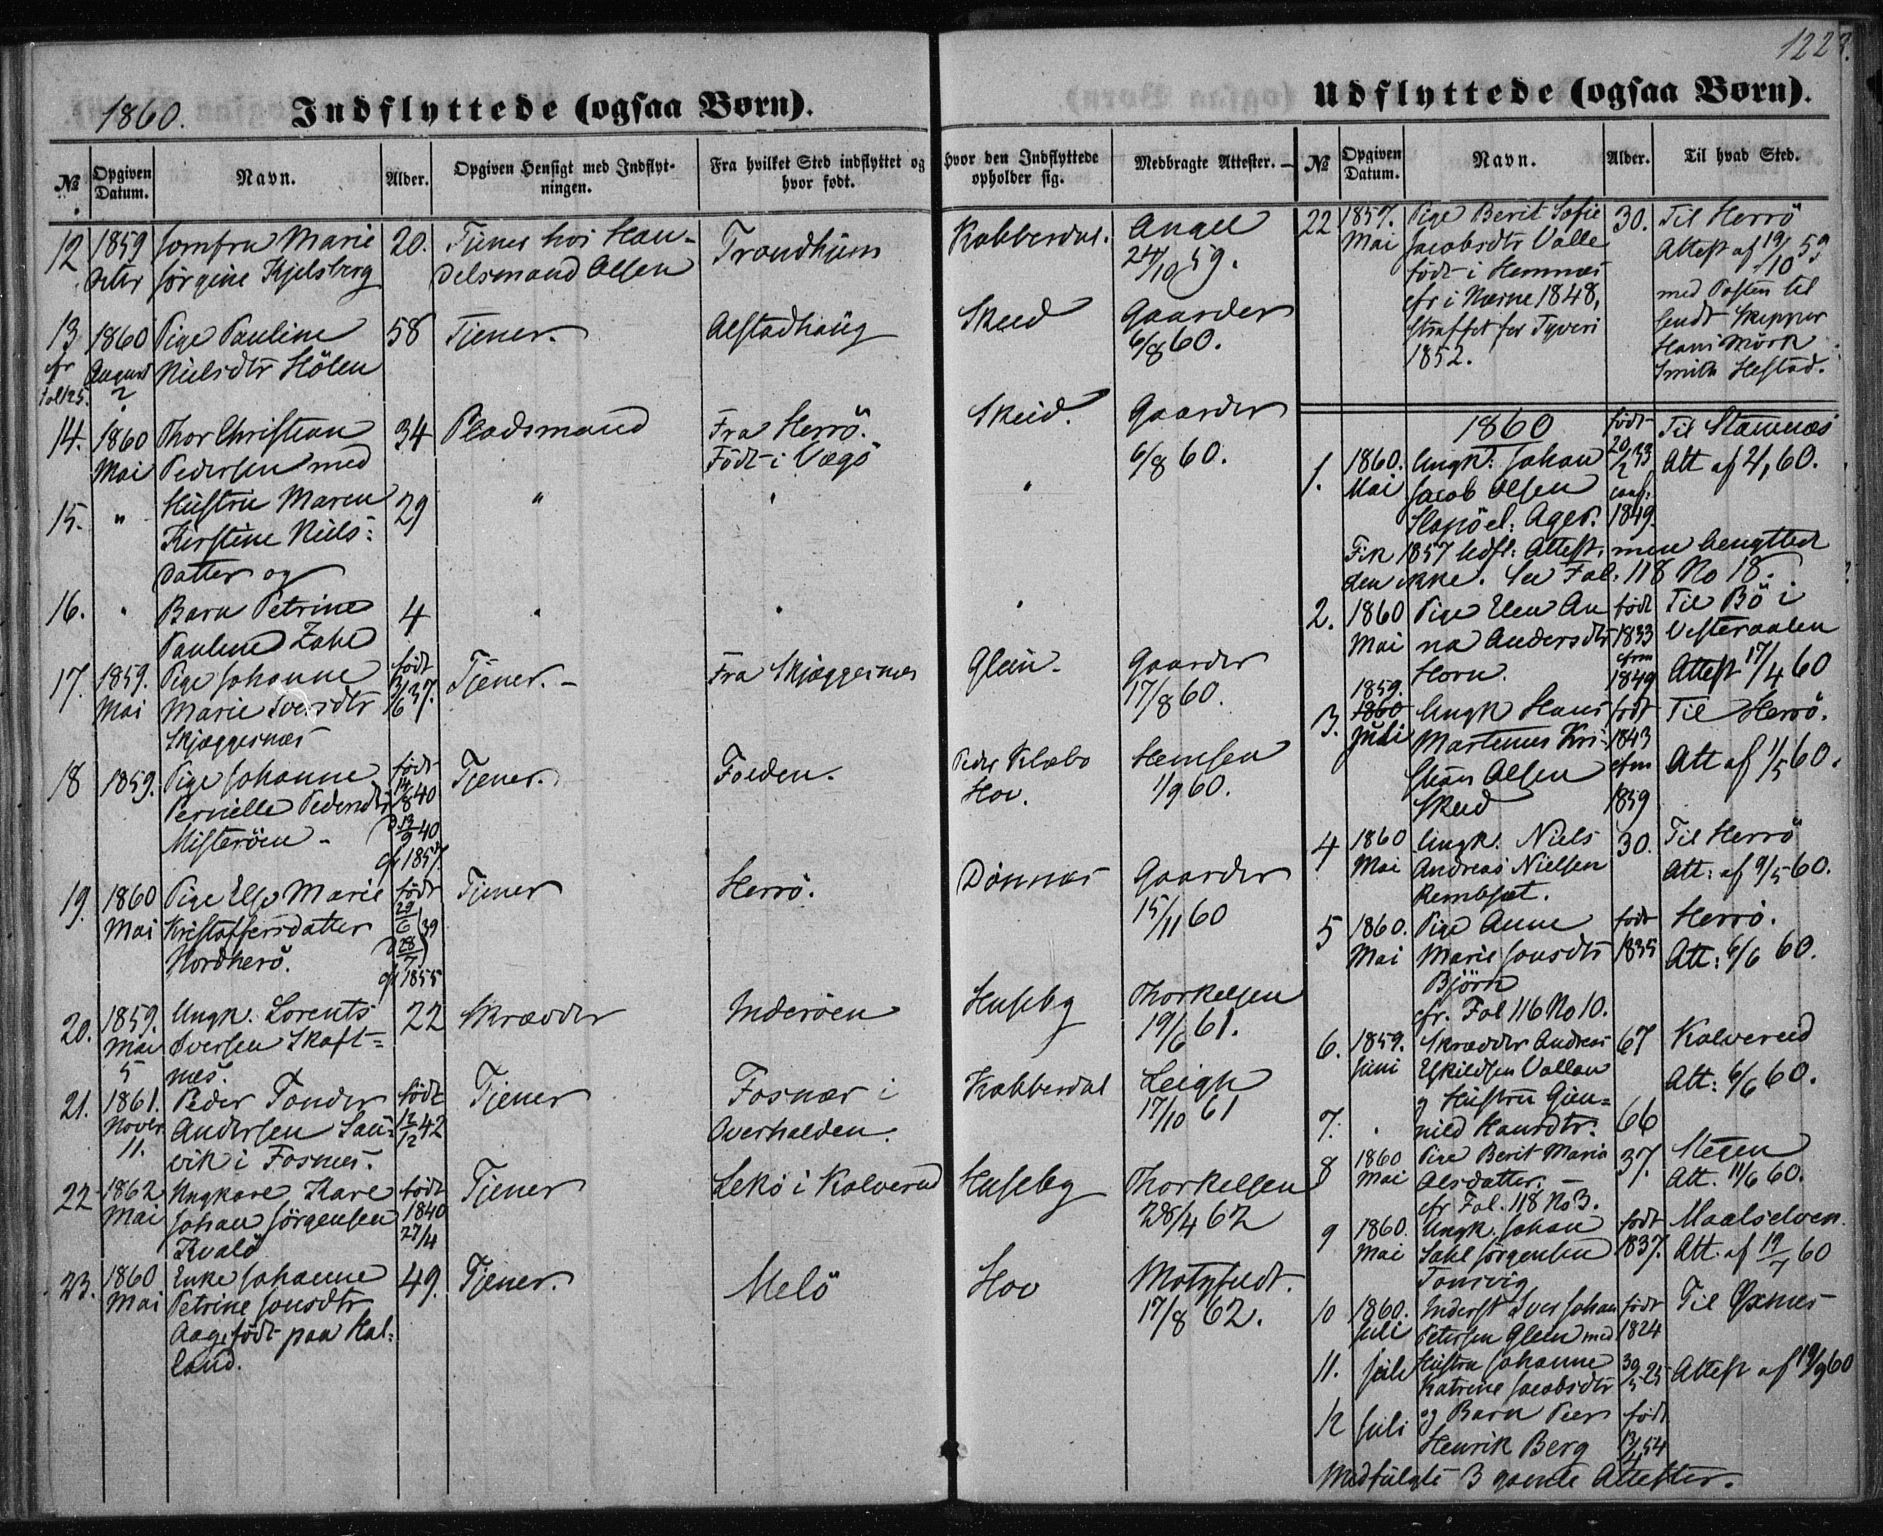 122
1860.
Indflyttede (ogsaa Børn).
№
Opgiven Datum.
Navn.
Alder.
Opgiven Hensigt med Indflytningen.
Fra hvilket Sted indflyttet og hvor født.
Hvor den Indflyttede opholder sig.
Medbragte Attester.
12 1859 Jomfru Marie 20. Tjener hos Han- Trondhjem Kobberdal. Angell
Jörgine Kjelsberg delsmand Olsen 24/10 59.
13 1860 Pige Pauline 58 Tjener. Alstadhaug Skeid Gaarder
cfr August Nielsdtr Hölen 6/8 60.
Fol 125. ?
14. 1860 Thor Christian 34 Pladsmand Fra Herrö. Skeid. Gaarder
Mai Pedersen med Födt i Vægö 6/8 60.
15. " Hustru Maren 29 " " "
Kirstine Niels-
datter og
16. " Barn Petrine 4 " " "
Pauline Zahl
17. 1859. Pige Johanne födt Tjener. Fra Skjæggesnes Glein Gaarder
Mai Marie Iversdtr /6 37. 17/8 60.
Skjæggesnæs
18 1859. Pige Johanne födt Tjener. Folden. Peder Klæbo Hemsen
Pernelle Pedersdtr /8 40 Hov. 1/9 60.
Misteröen - 13/9 40
1857.
19. 1860 Pige Else Marie födt Tjener Herrö. Dönnæs Gaarder
Mai Kristoffersdatter 29/6 39 15/11 60
Nordherö. 28/7
1855
20. 1859. Ungk. Lorents 22 Skrædder Inderöen Huseby Thorkelsen
Mai Iversen Skaft- 19/6 61.
5 næs.
21. 1861. Peder Tonder födt Tjener Fosnæs i Kobberdal Leigh
Novbr Andersen Sau- 12/12 42 Overhalden. 17/10 61
11. vik i Fosnes.
22 1862 Ungkare Kare födt Tjener Lekö i Kolvereid Huseby Thorkelsen
Mai Johan Jörgensen 1840 28/4 62
Kvalö 27/4
23. 1860 Enke Johanne 49. Tjener. Melö Hov Motzfeldt.
Mai Petrine Jonsdtr 17/8 62.
Aage födt paa Hal-
land.
Udflyttede (ogsaa Børn).
№
Opgiven Datum.
Navn.
Alder.
Til hvad Sted.
22 1857. Pige Berit Sofie 30. Til Herrö
Mai Jacobsdtr Valle Attest af 19/10 59
födt i Hemnæs
cfr i Nærne 1848, med Posten til
straffet for Tyveri sendt Skipper
1852. Hans Mörk
Smith Hestad.
1860
1. 1860. Ungk. Johan födt Til Stamnæs
Mai Jacob Olsen 20/2 33 Att af 2/1 60.
Slapöel. Ager. conf. 1849.
Fik 1857 Udfl: Attest, men benyttede
den ikke. See Fol. 118 No 18.
2. 1860 Pige Elen An födt Til Bö i
Mai na Andersdtr 1833 Vesteraalen
Horn. cfrm 1849 Attest 17/4 60
1859.
3. 1860 Ungk Hans födt Til Herrö.
Juli Martinus Kri- 1843
stian Olsen cfrm Att af 1/5 60.
Skeid 1859
4 1860 Ungk. Niels 30. Til Herrö
Mai Andreas Nielsen Att: af 9/5 60.
Rembsæt.
5 1860. Pige Anne födt Herrö.
Mai Marie Jonsdtr 1835 Att: 6/6 60.
Björn
cfr. Fol 116 No 10.
6. 1859. Skrædder Andreas 67 Kolvereid
Juni Eskildsen Vallan Att: 6/6 60.
7. " og Hustru Gun-
nild Hansdtr. 66
8 1860 Pige Berit Maria 37. Stegen
Mai Olsdatter. Att. 11/6 60.
cfr Fol. 118 No 3.
9 1860. Ungk. Johan födt Maalselven.
Mai Sahl Jörgensen 1837. Att. af 19/7 60
Tonsvig
10 1860. Inderst Iver Johan födt Til Öxnes
Juli Petersen Glein med 1824
11. Juli Hustru Johanne 30/5 25 Attest af 19/9 60
Katrine Jacobsdtr
12 Juli og Barn Peer födt
Henrik Berg 13/4 54
Medfulgte 3 gamle Attester.